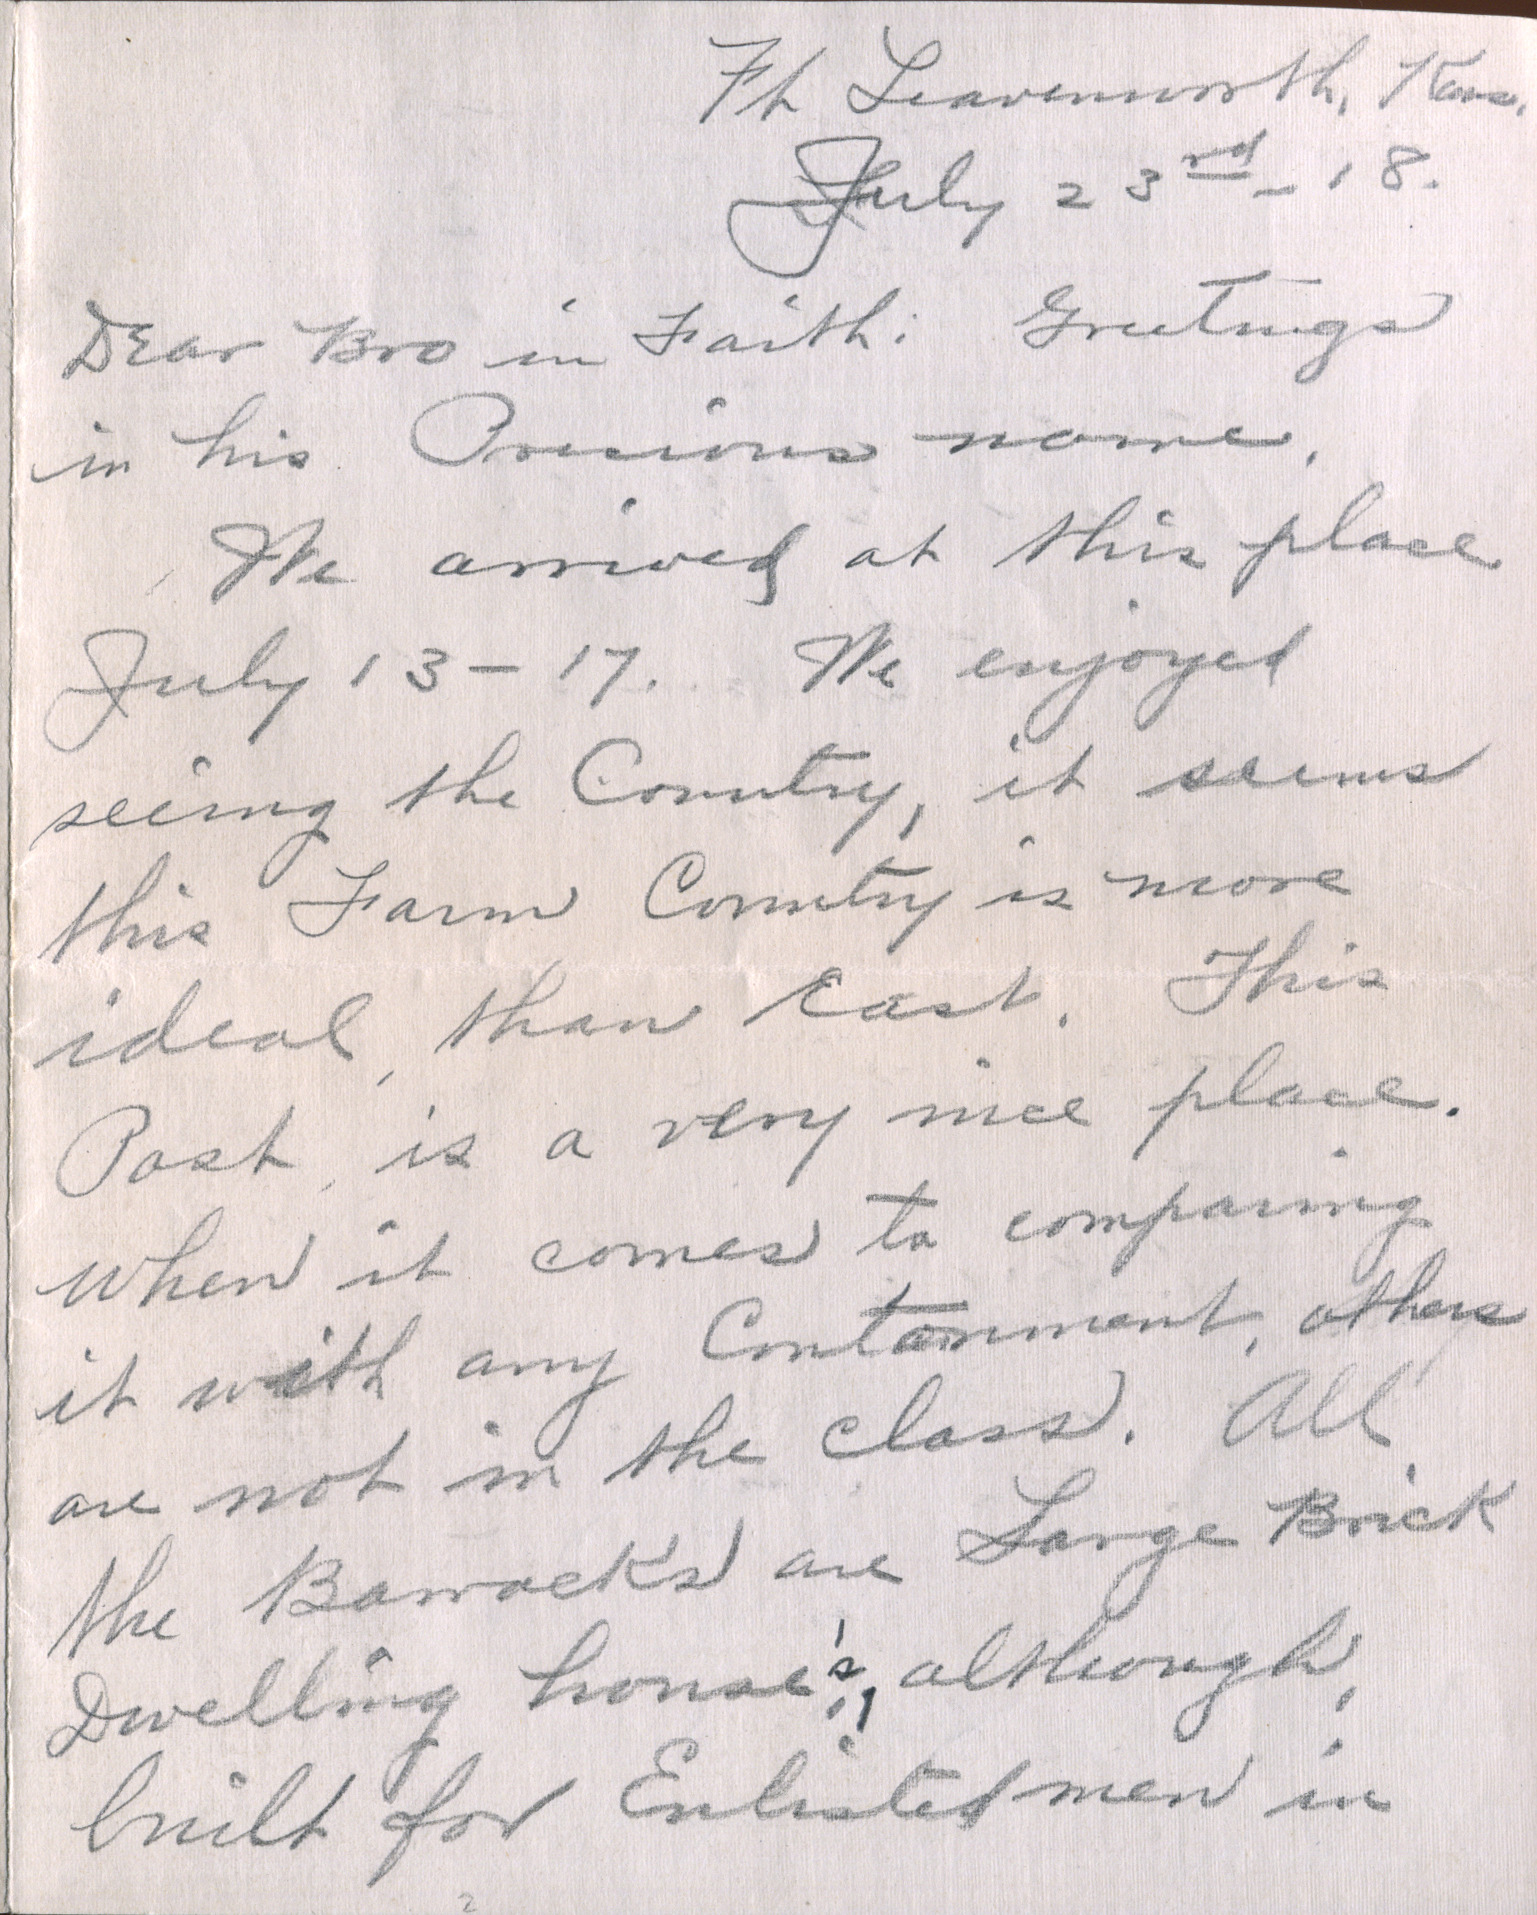 Ft Leavenworth, Kans.
July 23rd - 18.
Dear Bro in Faith: Greetings
in his Precious name.
We arrived at this place
July 13 - 17. We enjoyed
seeing the Country, it seems
this Farm Country is more
ideal, than East. This
Post, is a very nice place.
when it comes to comparing
it with any Contonment, others
are not in the class. All
the Barracks are Large Brick
Dwelling house's, although,
built for Enlisted men in
2